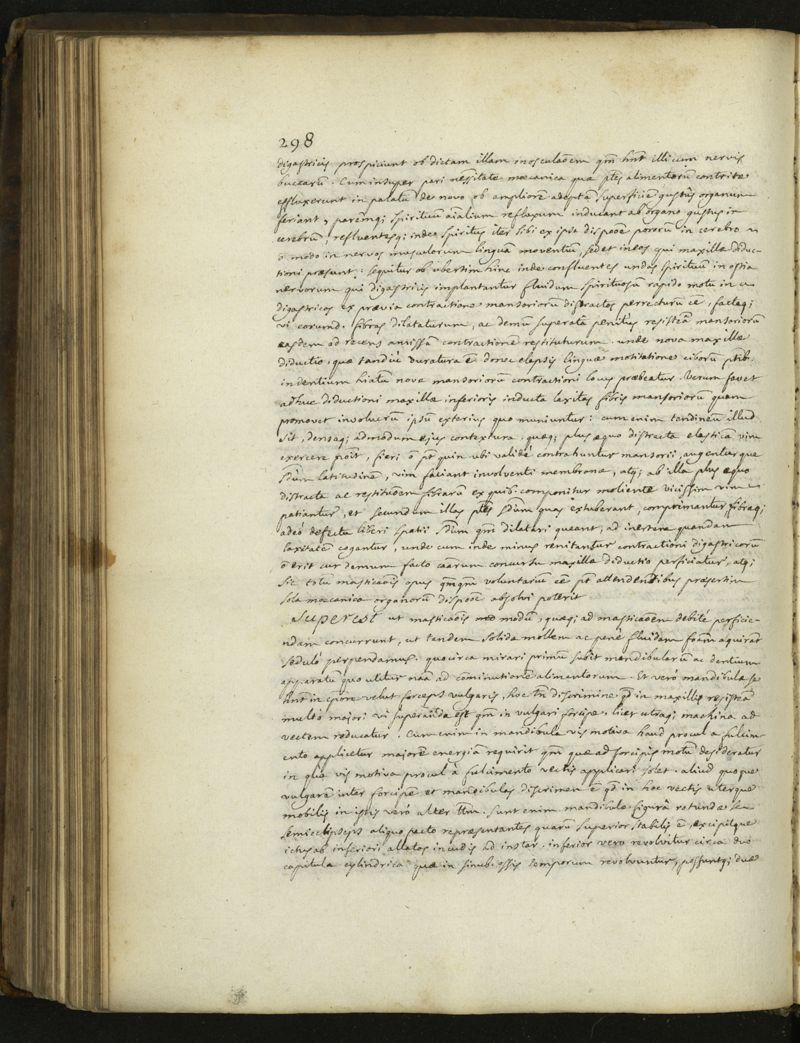 298
digastricis prospiciunt ob dictam illam inosculaōem qm hñt illicum nervis
buccarū. Cum insuper pari neſsitate mœcanica quæ ptes alimentorū contritæ
effluxerunt in palatū de novo ob ampliorē adeptā superficiē gustus organum
feriant, parēmq; spirituū aīalium refluxum inducant ab organo gustus in
cerebrū, refluentesq; inde spiritus iter sibi ex ipsa dispōōe pororū in cerebro
ō modo in nervos musculorum linguā moventiū, sed et in eos qui maxillæ diduc-
tioni præsunt: sequitur ob ubertim hinc inde confluentes undas spirituū in ostia
nervorum qui digastricis implantantur fluidum spirituosū rapido motu in
digastricos ex prævia contractione mansoriorū distractos perrecturū eē, factaq;
vi eorumd. fibras dilataturum, ac demū superatā penitus resistēā mansoriorū
easdem ad recens amissā contractionē restituturum. unde nova maxillæ
diductio, quæ tandiu duratura ē donec elapsis linguæ motitatione ciborū ptib.
indentium hiatū novæ mansoriorū contractioni locus præbeatur. Verum favet
adhuc diductioni maxillæ inferioris inducta laxitas fibris mansoriorū quam
promovet involucrū ipsū exterius quo muniuntur: cum enim tendineū illud
sit, densaq; admodum ejus contextura, quæq; plus æquo distracta elasticā vim
exercere pōit, fieri ō pt quin ubi validè contrahuntur mansorii, augenturque
sdūm latitudinē, vim faciant involventi membranæ, atq; ab illa plus æquo
distracta ac restitutōem fibrarū ex quib. componitur moliente vicissim vim
patiantur, et secundum illas ptes sdūm quas extuberant, comprimantur fibræq;
adeò defectu liberi spatii sdūm qm dilatari queant, ad inertem quandam
laxitatē cogantur, unde cum inde minus renitantur contractioni digastricorū
ō erit cur demum facto earum concursu maxillæ diductio perficiatur, atq;
sic totū masticaōis opus qmqm voluntariū eē pt attendentibus præsertim
sola mœcanica organorū dispōōe absolvi poterit.
Superest ut masticaōis modū, quæq; ad masticaōem debitè perficie-
ndam concurrunt, ut tandem solida mollem ac penè fluidam foām aquirāt
sedulò perpendamus. quocirca mirari primū subit mandibularū ac dentium
apparatū quo utitur naā ad cominutionē alimentorum. Et verò mandibulæ se
hñt in cpore velut forceps vulgaris, hoc tn discrimine qd in maxillis resistēā
multo majori vi superanda est qm in vulgari forcipe. licet utraq; machina ad
vectem reducatur. Cum enim in mandibula vis motiva haud procul a fulcim-
ento applicetur majorē energiā requirit qm quæ ad forcipis motū desideratur
in quâ vis motiva procul à fulcimento vectis applicari solet. aliud quoque
vulgarē inter forcipē et mandibulas discrimen ē qd in hoc vectis uterque
mobilis in istis verò alter ttm. sunt enim mandibulæ figurâ rotundæ seu
semiellipseos aliquo pacto repræsentantes quarū superior stabilis ē, excipitque
ictus ab inferiori allatos incudis ad instar. inferior vero revolvitur circa duo
capitula cylindrica quæ in sinub. ossis temporum revolvuntur, possuntq; duæ